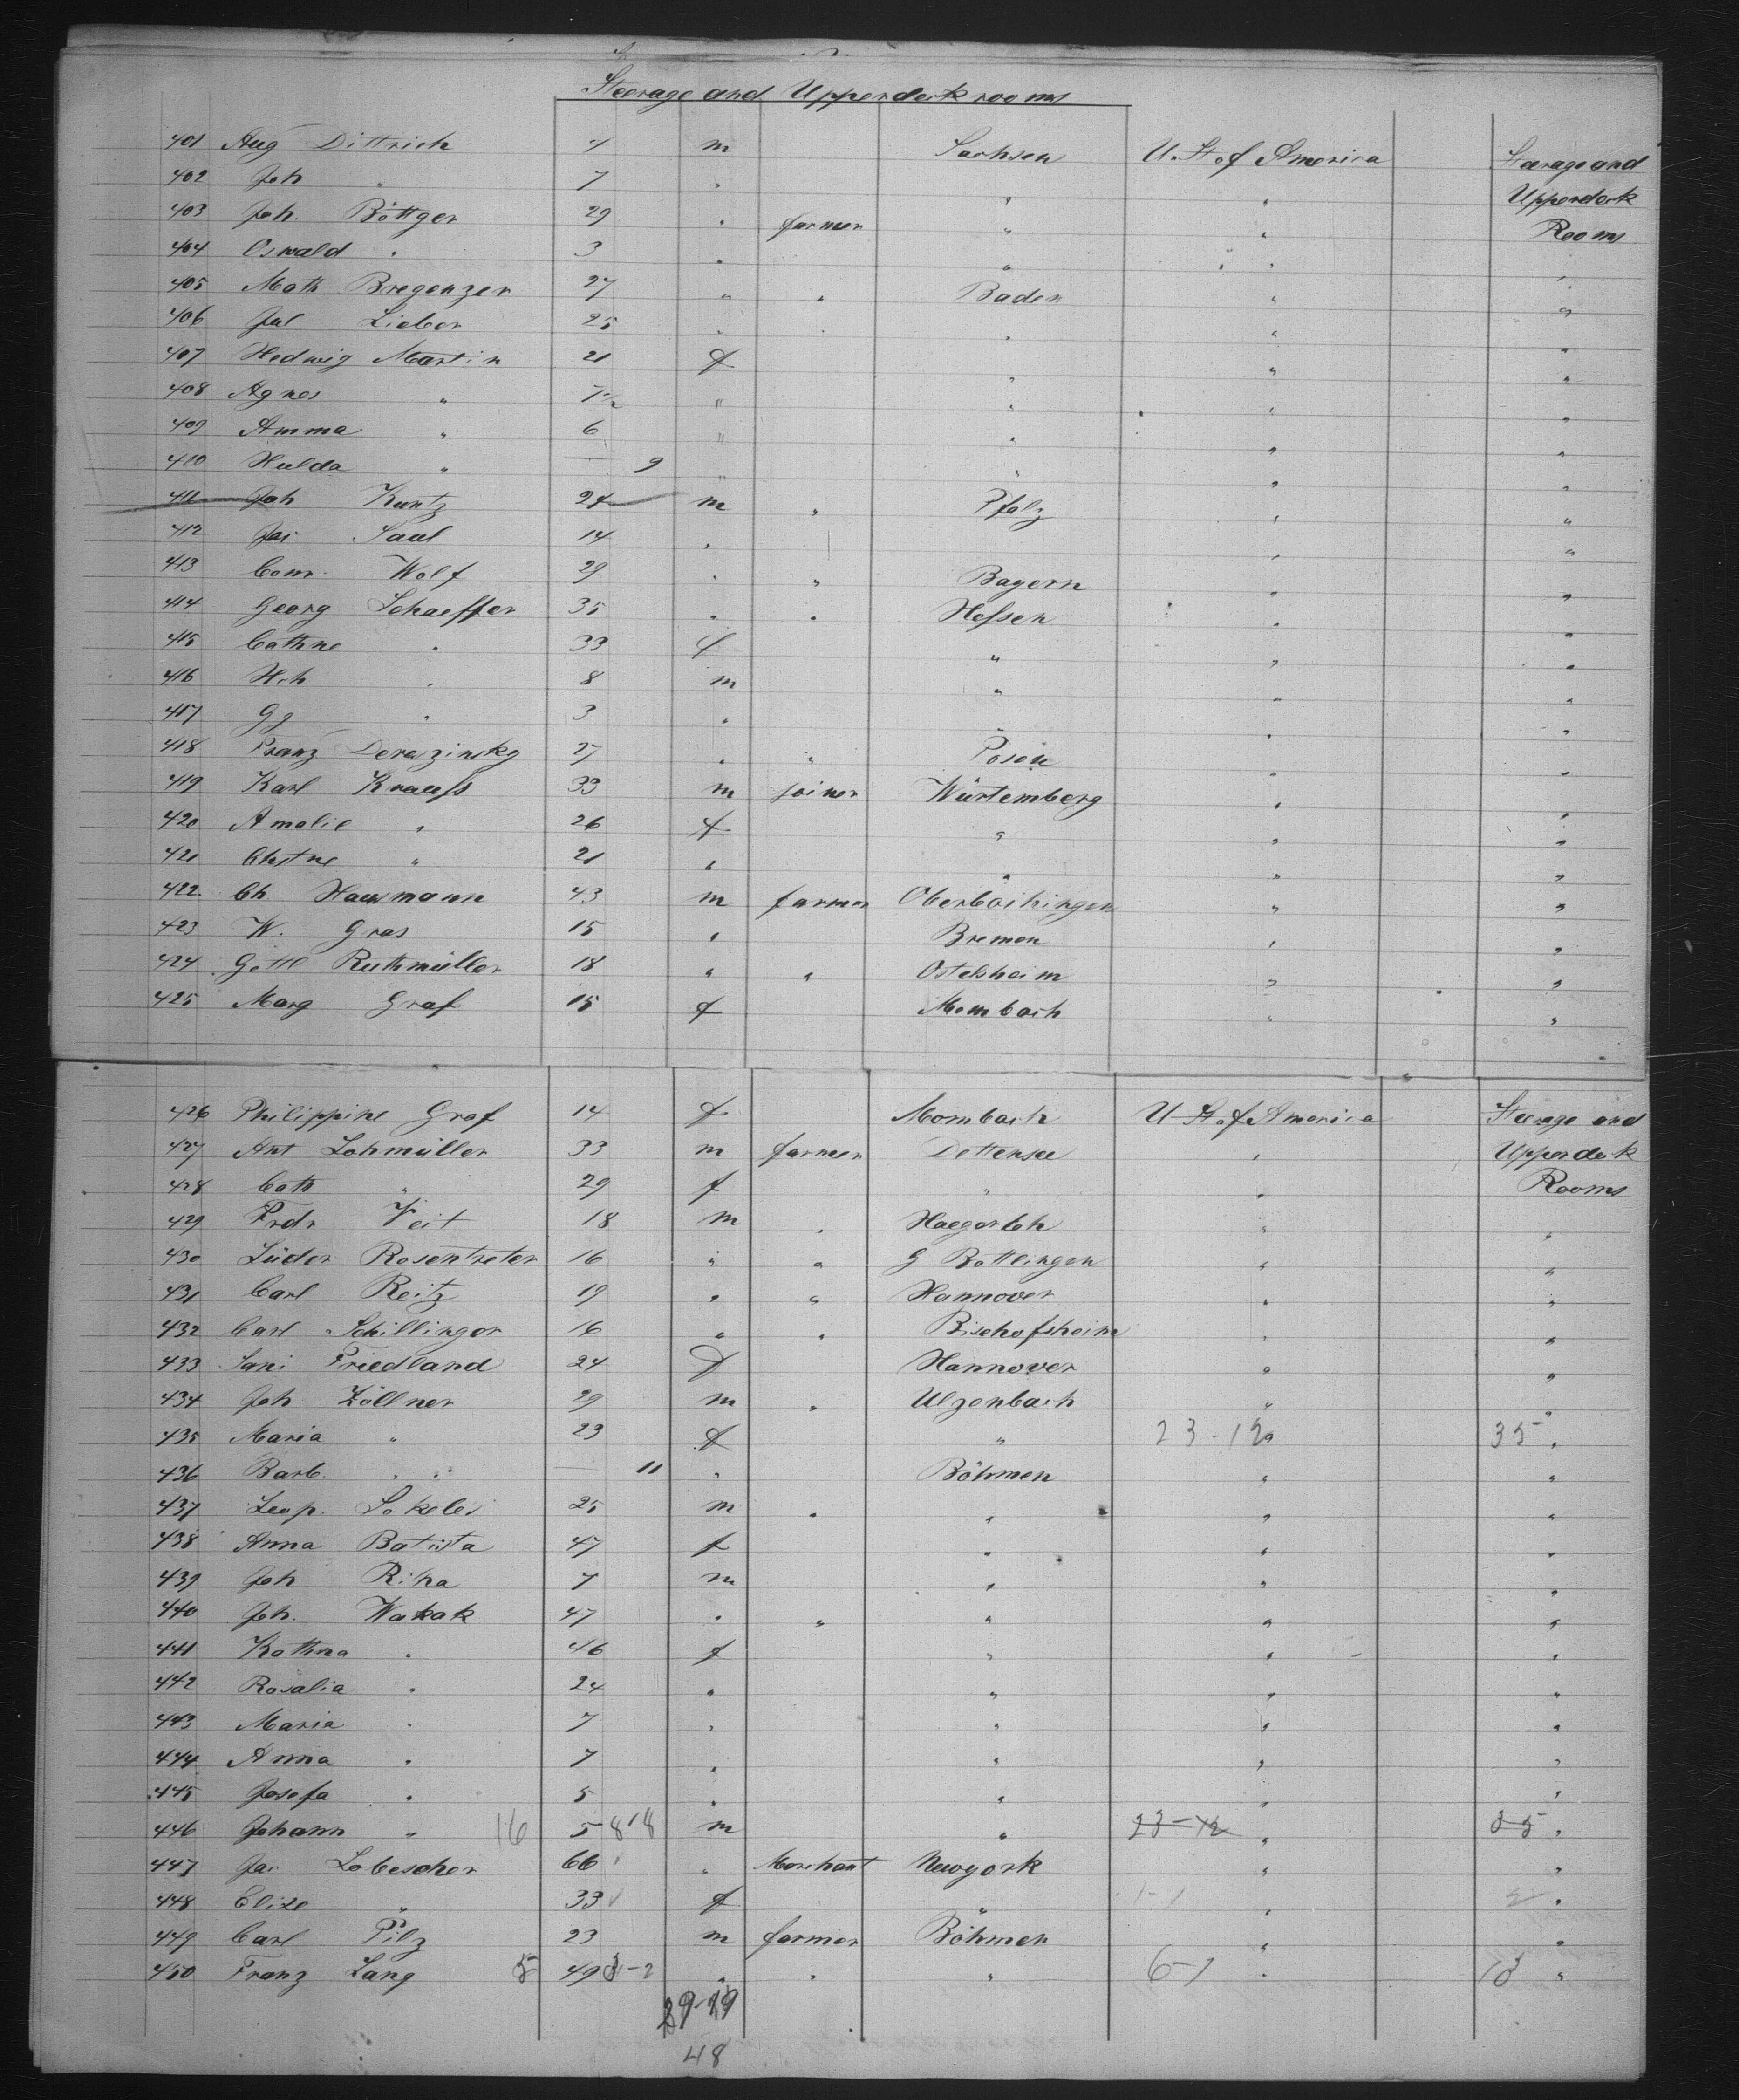 Steerage and Upperdeck rooms
401 Aug Dittrich 7 m Sachsen U. St. of America Steerage and
402 Joh " 7 " " " Upperdeck
403 Joh. Böttger 29 " farmer " " Rooms
404 Oswald " 3 " " " "
405 Math Bregenzer 27 " " Baden " "
406 Jul Lieber 25 " " " " "
407 Hedwig Martin 21 f " " "
408 Agnes " 7 1/2 " " " "
409 Amma " 6 " " " "
410 Hulda " — 9 " " " "
411 Joh Kuntz 24 m " Pfalz " "
412 Jac Saul 14 " " "
413 Conr. Wolf 29 " " Bayern " "
414 Georg Schaeffer 35 " " Hessen " "
415 Cathne " 33 f " " "
416 Hch " 8 m " " "
417 Gg " 3 " " " "
418 Franz Derazinsky 27 " " Posen " "
419 Karl Krauss 33 m joiner Würtemberg " "
420 Amalie " 26 f " " "
421 Chstne " 21 " " " "
422 Ch. Hausmann 43 m farmer Oberboihingen " "
423 W. Gras 15 " Bremen " "
424 Gottl Ruthmüller 18 " " Ostelsheim " "
425 Marg Graf 15 f Mombach " "
426 Philippine Graf 14 f Mombach U St. of America Steerage and
427 Ant Lohmüller 33 m farmer Dettensee " Upperdeck
428 Cath " 29 f " " Rooms
429 Frdr Veit 18 m " " "
430 Lüder Rosentreter 16 " " G Bottlingen " "
431 Carl Reitz 19 " " Hannover " "
432 Carl Schillinger 16 " " Bischofsheim " "
433 Sani Friedland 24 f Hannover " "
434 Joh Zöllner 29 m " Ulzenbach " "
435 Maria " 23 f " 23-12 " 35 "
436 Barb. " — 11 " Böhmen " "
437 Leop. Sokelei 25 m " " " "
438 Anna Batista 47 f " " "
439 Joh Riha 7 m " " "
440 Joh. Wakak 47 " " " " "
441 Kathna " 46 f " " "
442 Rosalia " 24 " " " "
443 Maria " 7 " " " "
444 Anna " 7 " " " "
445 Josefa " 5 " " " "
446 Johann " 16 5 8 8 m " 23-12 " 35 "
447 Jac Lobescher 66 " Merchant Newyork " "
448 Elize " 33 f " 1-1 " 2 "
449 Carl Pilz 23 m farmer Böhmen " "
450 Franz Lang 5 49 3-2 " " " 6-7 " 13 "
29-19
48